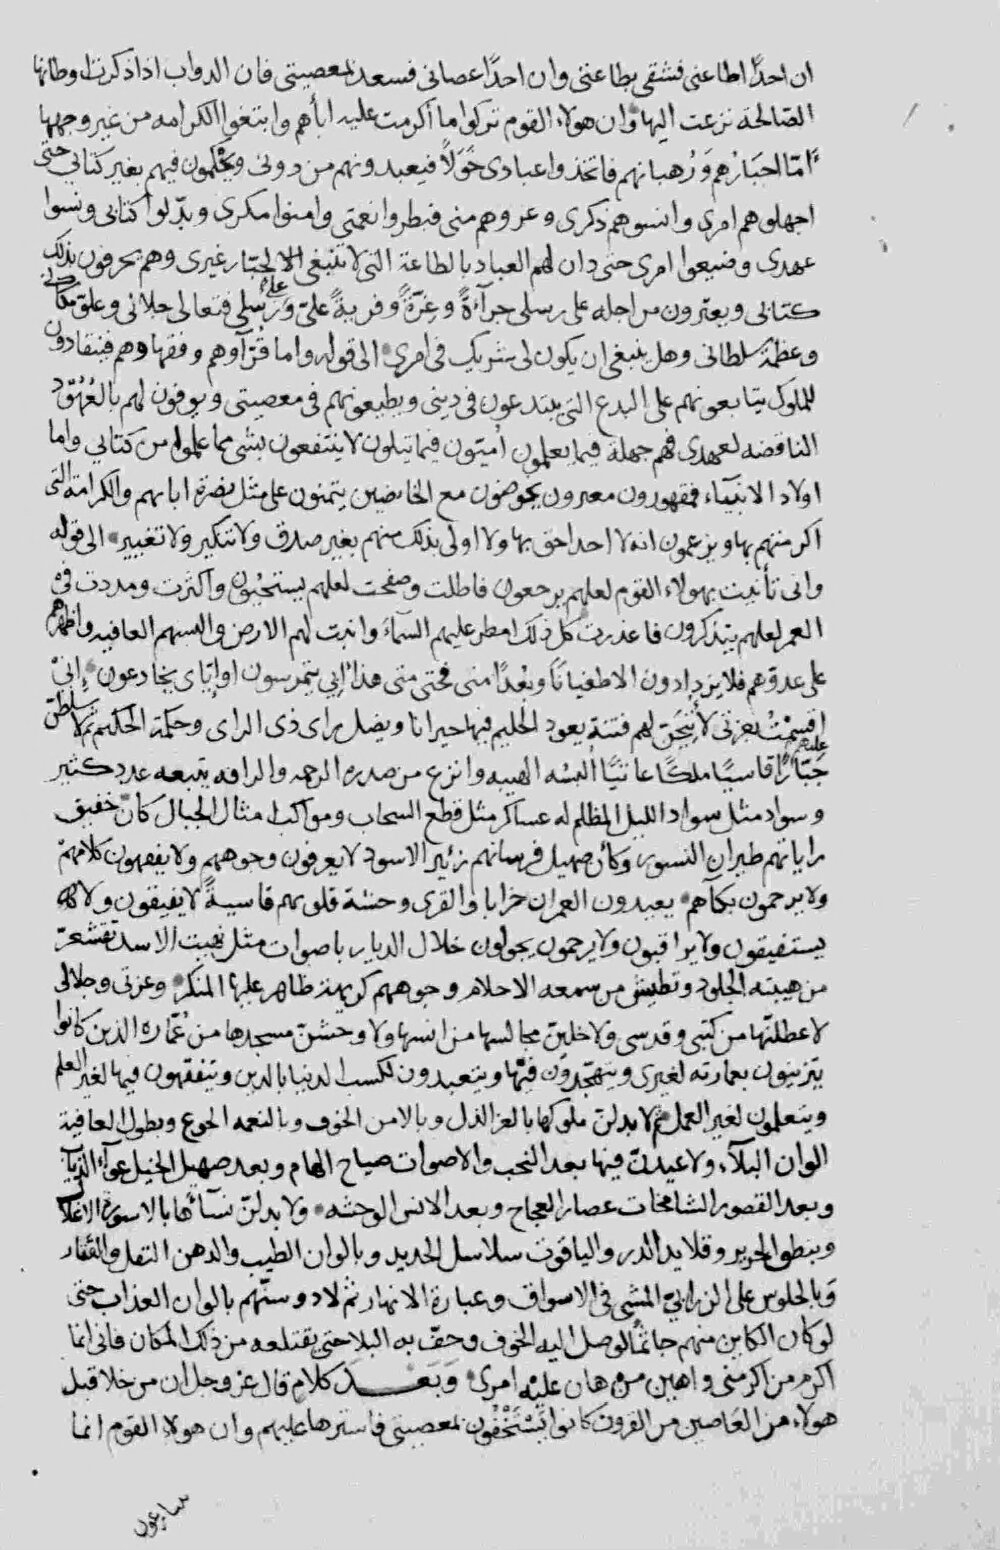 ان احدًا اطاعني فشقي بطاعتي وان احدًا عصاني فسعد بمعصيتي فان الدواب اذا ذكرت اوطانها
الصّالحة نزعت اليها وان هولاء القوم تركوا ما اكرمت عليه ابآهم وابتغوا الكرامه من غير وجهها
امّا احبَارُهم وَرُهبانهم فاتخذوا عبادى خَوَلاً فيعبدونهم من دونى ويحْكمون فيهم بغير كتابي حتّى
اجهلوهم امرى وانسوهم ذكرى وغروهم منى فبطروا نعمتى وامنوا مكرى وبدّلوا كتابى ونسوا
عهدى وضيعوا امرى حتى دان لهم العباد بالطاعة التى لا تنبغى الا لجبّار غيرى وهم يحرفون بذلك
كتابى ويفترون من اجله على رسلى جرآءةً وغِرّةً وفريةً علىّ وعلى رسُلى فتعالى جلالى وعلوّ مكانى
وعظمة سلطانى وهل ينبغى ان يكون لى شريك فى امرى الى قوله واما قُرّآوهم وفقهاوهم فينقادون
للملوك يتابعونهم على البدع التى يبتدعون فى دينى ويطيعونهم فى معصيتى ويوفون لهم بالعُهُود
الناقضه لعهدى فهم جهلة فيما يعلمون اميّون فيما يتلون لا ينتفعون بشى مما علموا من كتابي واما
اولاد الانبيآء فمقهورون مغيرون يخوضون مع الخايضين يتمنون على مثل نصرة ابايهم والكرامة التى
اكرمتهم بها ويزعمون انه لا احد احق بها ولا اولى بذلك منهم بغير صدق ولا تنكير ولا تغيير الى قوله
وانى تأنيت بهولاء القوم لعلهم يرجعون فاطلت وصفحت لعلهم يستحيون واكثرت ومددت فى
العمر لعلهم يتذكرون فاعذرت كل ذلك امطر عليهم السمآء وانبت لهم الارض والبسهم العافيه واظهرهم
على عدوّهم فلا يزدادون الا طغيانًا وبُعْدًا منى فحتى متى هذا ابى يتمرسون او ايّاى يخادعون اِنّىْ
اقسَمْتُ بعزتى لأتيحَنّ لهم فتنة يعود الحليم فيها حيرانا ويضل راى ذى الراى وحكمة الحكيم ثم لاسلطنّ
عليهم جَبّارًا قاسيًا ملكًا عاتيًا البسُه الهيبه وانزع من صدره الرحمه والرافه يتبعه عدد كثير
وسواد مثل سواد الليل المظلم له عساكر مثل قطع السحاب ومواكب امثال الجبال كانّ خفيق
راياتهم طيران النسور وكأن صهيل فرسانهم زئير الاسود لا يعرفون وجوههم ولا يفقهون كلامهمّ
ولا يرحمون بكآهم يعيدون العمران خرابا والقرى وحشة قلوبهم قاسيةً لا يفيقون ولا
يستفيقون ولا يراقبون ولا يرحمون يجولون خلال الديار باصوات مثل الاسد تقشعرّ
من هيبته الجلود وتطيش من سمعه الاحلام وجوههم كريهة ظاهر عليها المنكر وعزتى وجلالى
لاعطلنّها من كتبى وقدسى ولاخلينّ مجالسها من انسها ولاوحشنّ مسجدها من عُمّاره الذين كانوا
يتزينون بعمارته لغيرى ويتهجّدوْن فيها ويتعبدون لكسب الدنيا بالدين ويتفقهون فيها لغير العلم
ويتعلمون لغير العمل ثم لابدلن ملوكها بالعز الذل وبالامن الخوف وبالنعمه الجوع وبطول العافية
الوان البلآء ولاعيدنّ فيها بعد النجب والاصوات صياح الهام وبعد صهيل الخيل عوآء الذياب
وبعد القصور الشامخات عصار العجاج وبعد الانس الوحشه ولابدلنّ نسآئها بالاسورة الاغلال
وبنطق الحرير وقلايد الدر والياقوت سلاسل الحديد وبالوان الطيب والدهن التفل والغبار
وبالجلوس على الزرابىّ المشى فى الاسواق وعبارة الانهار ثم لادوسنّهم بالوان العذاب حتى
لو كان الكاين منهم جاثمًا لوصل اليه الخوف وحفّ به البلا حتى يقتلعه من ذلك المكان فانى انما
اكرم من اكرمنى واهين من هان عليه امرى وَبَعـد كلام قال عز وجل ان من خلا قبل
هولاء من العاصين من القرون كانوا يَسْتَخْفُون بمعصيتى فاسترها عليهم وان هولاء القوم انما